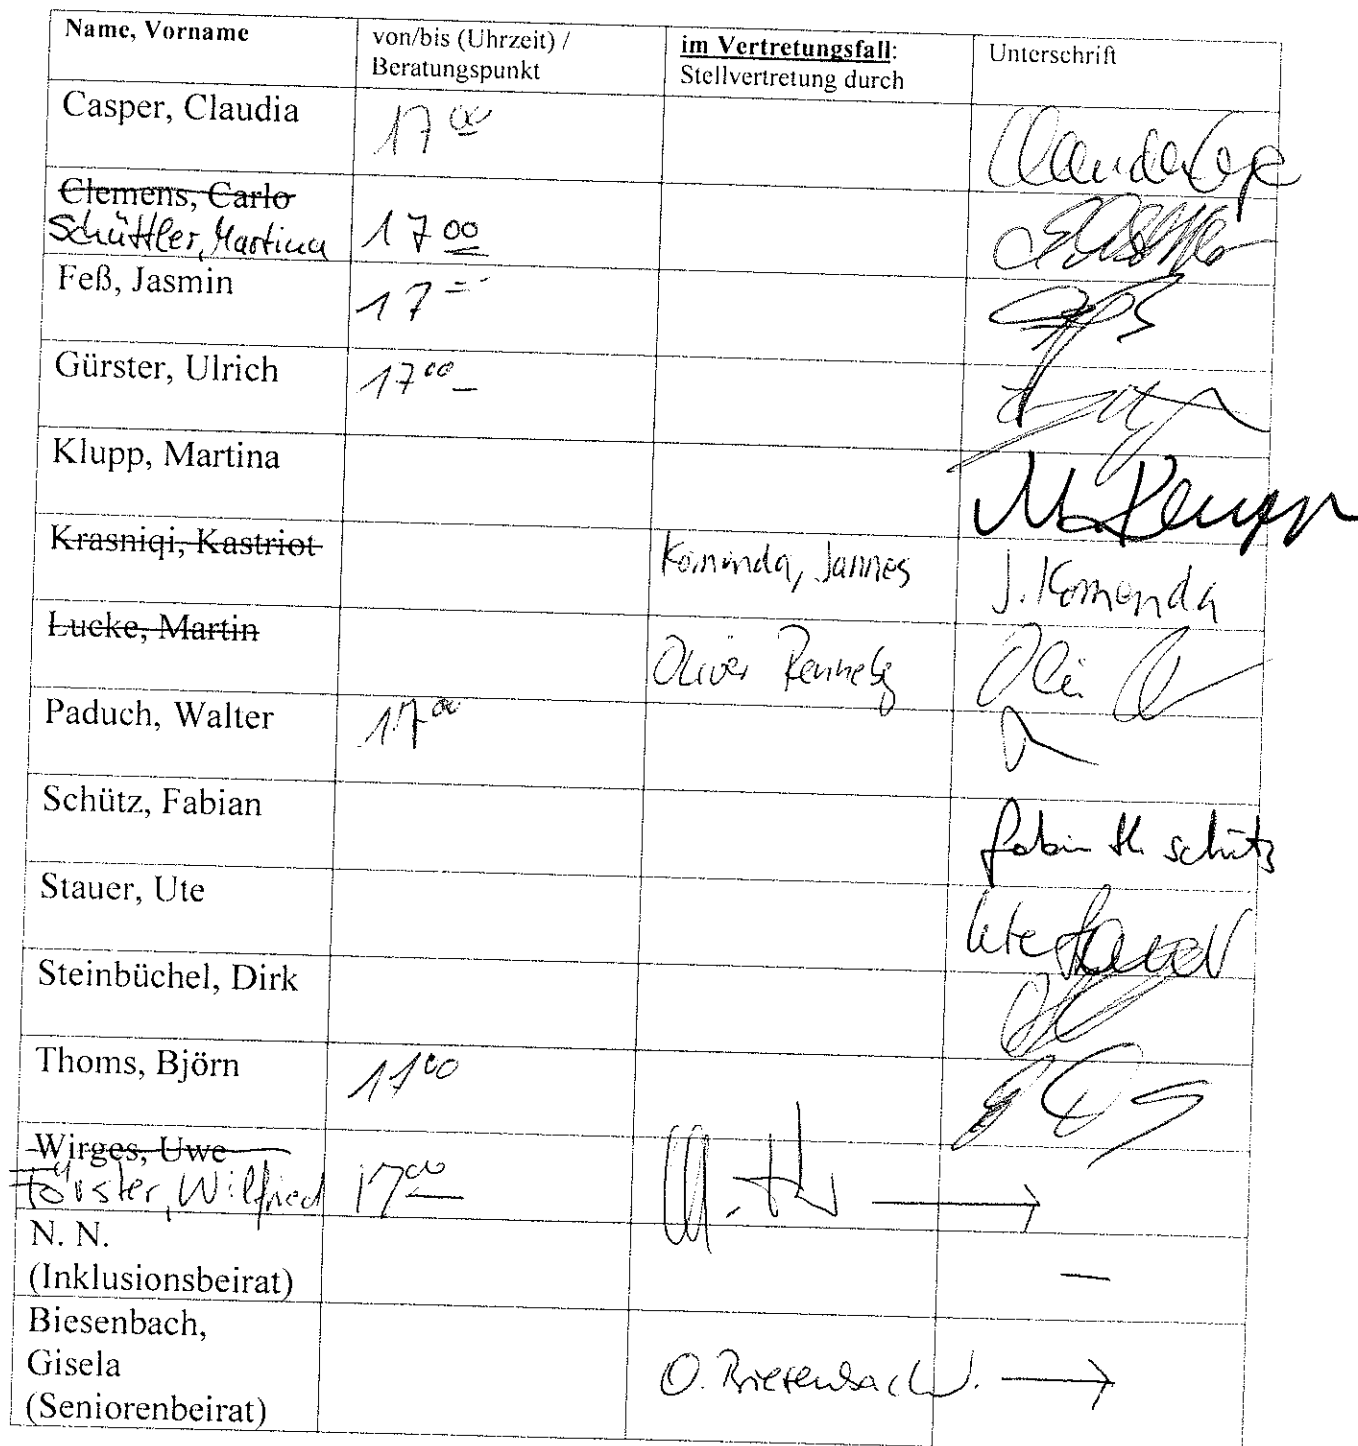 Name, Vorname
von/bis (Uhrzeit) /
Beratungspunkt
im Vertretungsfall:
Stellvertretung durch
Unterschrift
Casper, Claudia
17 00
Clemens, Carlo
Schüttler, Martina
17 00
Feß, Jasmin
17
Gürster, Ulrich
17 00
Klupp, Martina
Krasniqi, Kastriot
Komenda, Jannes
J. Komenda
Lucke, Martin
Oliver
Paduch, Walter
17 00
Schütz, Fabian
Fabian Schütz
Stauer, Ute
Ute Stauer
Steinbüchel, Dirk
Thoms, Björn
17 00
Wirges, Uwe
Förster, Wilfried
17 00
N. N.
(Inklusionsbeirat)
—
Biesenbach,
Gisela
(Seniorenbeirat)
Biesenbach